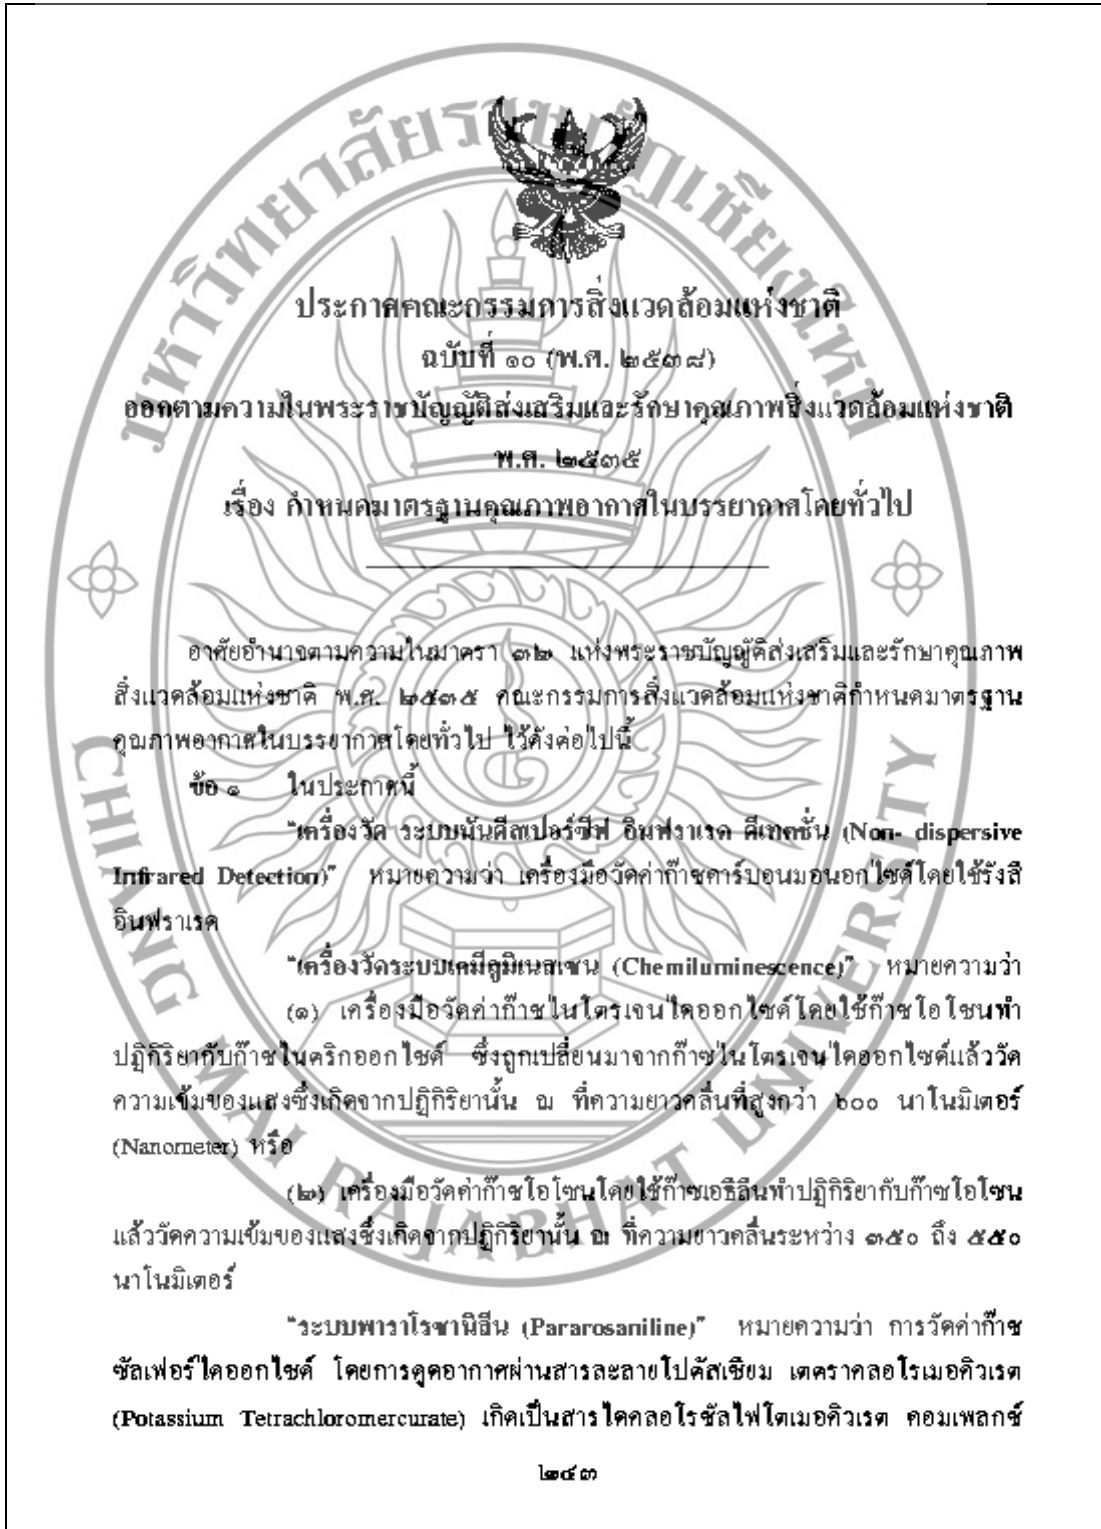 มหาวิทยาลัยราชภัฏเชียงใหม่
ประกาศคณะกรรมการสิ่งแวดล้อมแห่งชาติ
ฉบับที่ ๑๐ (พ.ศ. ๒๕๓๘)
ออกตามความในพระราชบัญญัติส่งเสริมและรักษาคุณภาพสิ่งแวดล้อมแห่งชาติ
พ.ศ. ๒๕๓๕
เรื่อง กำหนดมาตรฐานคุณภาพอากาศในบรรยากาศโดยทั่วไป
อาศัยอำนาจตามความในมาตรา ๓๒ แห่งพระราชบัญญัติส่งเสริมและรักษาคุณภาพ
สิ่งแวดล้อมแห่งชาติ พ.ศ. ๒๕๓๕ คณะกรรมการสิ่งแวดล้อมแห่งชาติกำหนดมาตรฐาน
คุณภาพอากาศในบรรยากาศโดยทั่วไป ไว้ดังต่อไปนี้
ข้อ ๑ ในประกาศนี้
"เครื่องวัด ระบบนันดีสเปอร์ซีฟ อินฟราเรด ดีเทคชั่น (Non- dispersive
Infrared Detection)" หมายความว่า เครื่องมือวัดค่าก๊าซคาร์บอนมอนอกไซด์โดยใช้รังสี
อินฟราเรด
"เครื่องวัดระบบเคมีลูมิเนสเซน (Chemiluminescence)" หมายความว่า
(๑) เครื่องมือวัดค่าก๊าซไนโตรเจนไดออกไซด์โดยใช้ก๊าซโอโซนทำ
ปฏิกิริยากับก๊าซไนตริกออกไซด์ ซึ่งถูกเปลี่ยนมาจากก๊าซไนโตรเจนไดออกไซด์แล้ววัด
ความเข้มของแสงซึ่งเกิดจากปฏิกิริยานั้น ณ ที่ความยาวคลื่นที่สูงกว่า ๖๐๐ นาโนมิเตอร์
(Nanometer) หรือ
(๒) เครื่องมือวัดค่าก๊าซโอโซนโดยใช้ก๊าซเอธิลีนทำปฏิกิริยากับก๊าซโอโซน
แล้ววัดความเข้มของแสงซึ่งเกิดจากปฏิกิริยานั้น ณ ที่ความยาวคลื่นระหว่าง ๓๕๐ ถึง ๕๕๐
นาโนมิเตอร์
"ระบบพาราโรซานิลีน (Pararosaniline)" หมายความว่า การวัดค่าก๊าซ
ซัลเฟอร์ไดออกไซด์ โดยการดูดอากาศผ่านสารละลายโปตัสเซียม เตตราคลอโรเมอคิวเรต
(Potassium Tetrachloromercurate) เกิดเป็นสารไดคลอโรซัลไฟโตเมอคิวเรต คอมเพลกซ์
๒๔๓
CHIANG MAI RAJABHAT UNIVERSITY